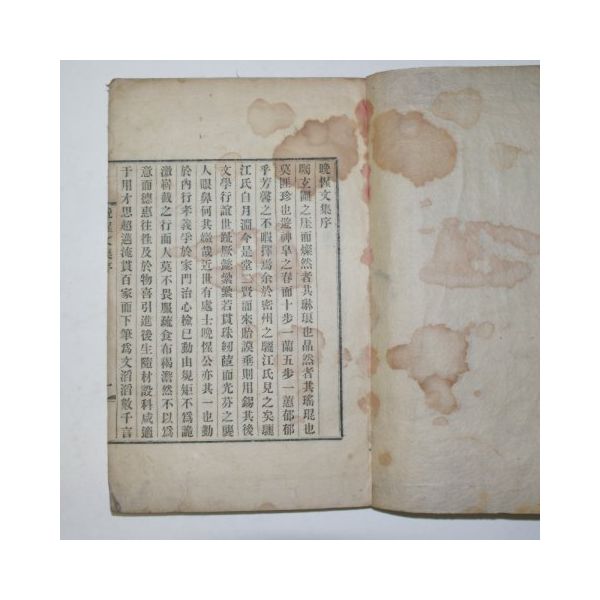 晚惺文集序
矚玄圃之庄而燦然者其琳琅也晶然者其瑤琨也
莫匪珍也遊神皐之春而十步一蘭五步一蕙郁郁
乎芳馨之不暇擇焉余於密州之驪江氏見之矣驪
江氏自月淵今是堂二賢而來貽謨垂則用錫其後
文學行誼世趾厥懿纍纍若貫珠紉蕙而光芬之襲
人眼鼻何其繳哉近世有處士晚惺公亦其一也勤
於內行孝義學於家門治心檢己動由規矩不爲詭
激嶄截之行而人莫不畏服疏食布褐澹然不以爲
意而德惠往往及於物喜引進後生隨材設科咸適
于用才思超邁淹貫百家而下筆爲文滔滔數千言
晚惺文集序
一